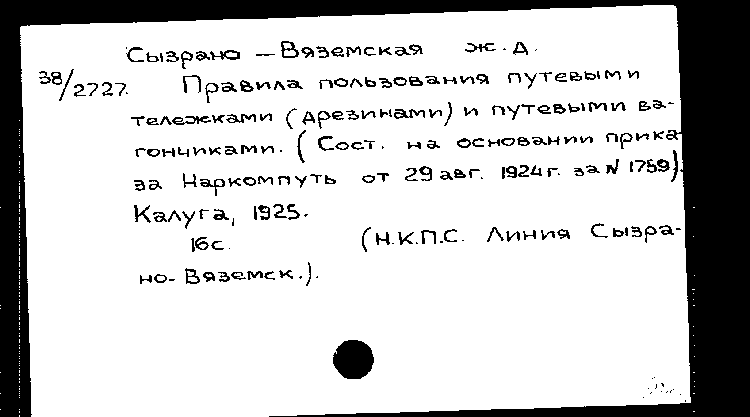 Сызрано — Вяземская ж. д.
38/2727. Правила пользования путевыми
тележками (дрезинами) и путевыми ва-
гончиками. (Сост. на основании прика-
за Наркомпуть от 29 авг. 1924 г. за N 1759).
Калуга, 1925.
16 с. (Н.К.П.С. Линия Сызра-
но-Вяземск.).